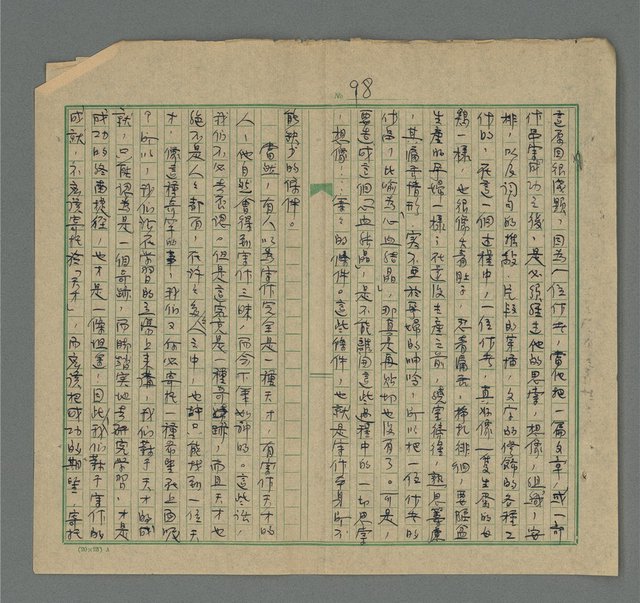 98
意原因很幾題,因為一位作者,當他把一篇文章,或一部
作品寫成功之後,是必須經過他的思索,想像,組織,安
排,以及詞句的推敲,片段的穿插,文字的修飾的各種工
作的,在這一個過程中,一位作者,真好像一隻生蛋的母
鷄一樣,也很像生病肚子,忍着痛苦,掙扎徘徊,要臨盆
生產的孕婦一樣;在這沒生產之前,繞室徬徨,熟思審慮
,其痛苦情形,實不亞於孕婦的呻吟,所以把一位作者的
作品,比喻為心血結晶,那真是再貼切也沒有了。可是,
要造成這個心血結晶,是不能離開這些過程中的一切思索
,想像,……等等的條件。這些條件,也就是寫作本身所不
能缺少的條件。
當然,有人以為寫作完全是一種天才,有寫作天才的
人,他自然會得到寫作之味,而念下筆如神的。這些說法,
我們不必去否認。但是這究竟是一種奇蹟,而且天才也
絕不是人人都有,在許多人之中,也許只能找到一位天
才,像這種奇罕的事,我們又何必寄托一種希望在上面呢
?所以,我們站在學習的立場上來講,我們對于天才的成
就,只能認為是一個奇跡,而脚踏實地去研究學習,才是
成功的終南捷徑,也才是一條坦途,因此我們對于寫作的
成就,不應該寄托於「天才」,而應該把成功的期望,寄托
(20×25) A